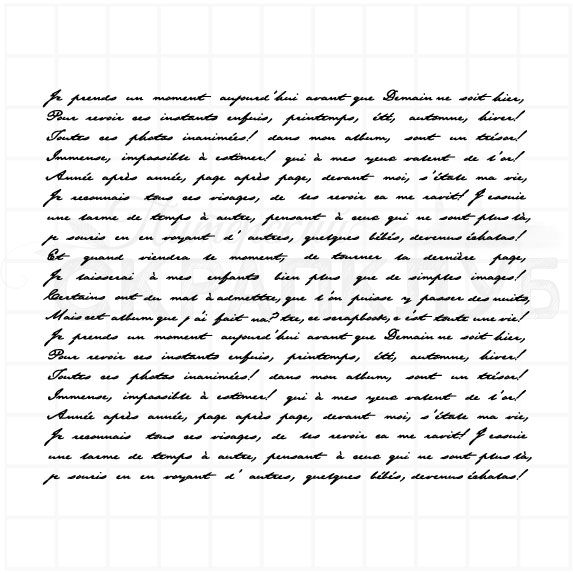 Je prends un moment aujourd'hui avant que Demain ne soit hier,
Pour revoir ces instants enfuis, printemps, été, automne, hiver!
Toutes ces photos inanimées! dans mon album, sont un trésor!
Immense, impossible à estimer! qui à mes yeux valent de l'or!
Année après année, page après page, devant moi, s'étale ma vie,
Je reconnais tous ces visages, de les revoir ca me ravit! J'essuie
une larme de temps à autre, pensant à ceux qui ne sont plus là,
je souris en en voyant d'autres, quelques bébés, devenus échalas!
Et quand viendra le moment, de tourner la dernière page,
Je laisserai à mes enfants bien plus que de simples images!
Certains ont du mal à admettre, que l'on puisse y passer des nuits,
Mais cet album que j'ai fait na? tre, ce scrapbook, c'est toute une vie!
Je prends un moment aujourd'hui avant que Demain ne soit hier,
Pour revoir ces instants enfuis, printemps, été, automne, hiver!
Toutes ces photos inanimées! dans mon album, sont un trésor!
Immense, impossible à estimer! qui à mes yeux valent de l'or!
Année après année, page après page, devant moi, s'étale ma vie,
Je reconnais tous ces visages, de les revoir ca me ravit! J'essuie
une larme de temps à autre, pensant à ceux qui ne sont plus là,
je souris en en voyant d'autres, quelques bébés, devenus échalas!